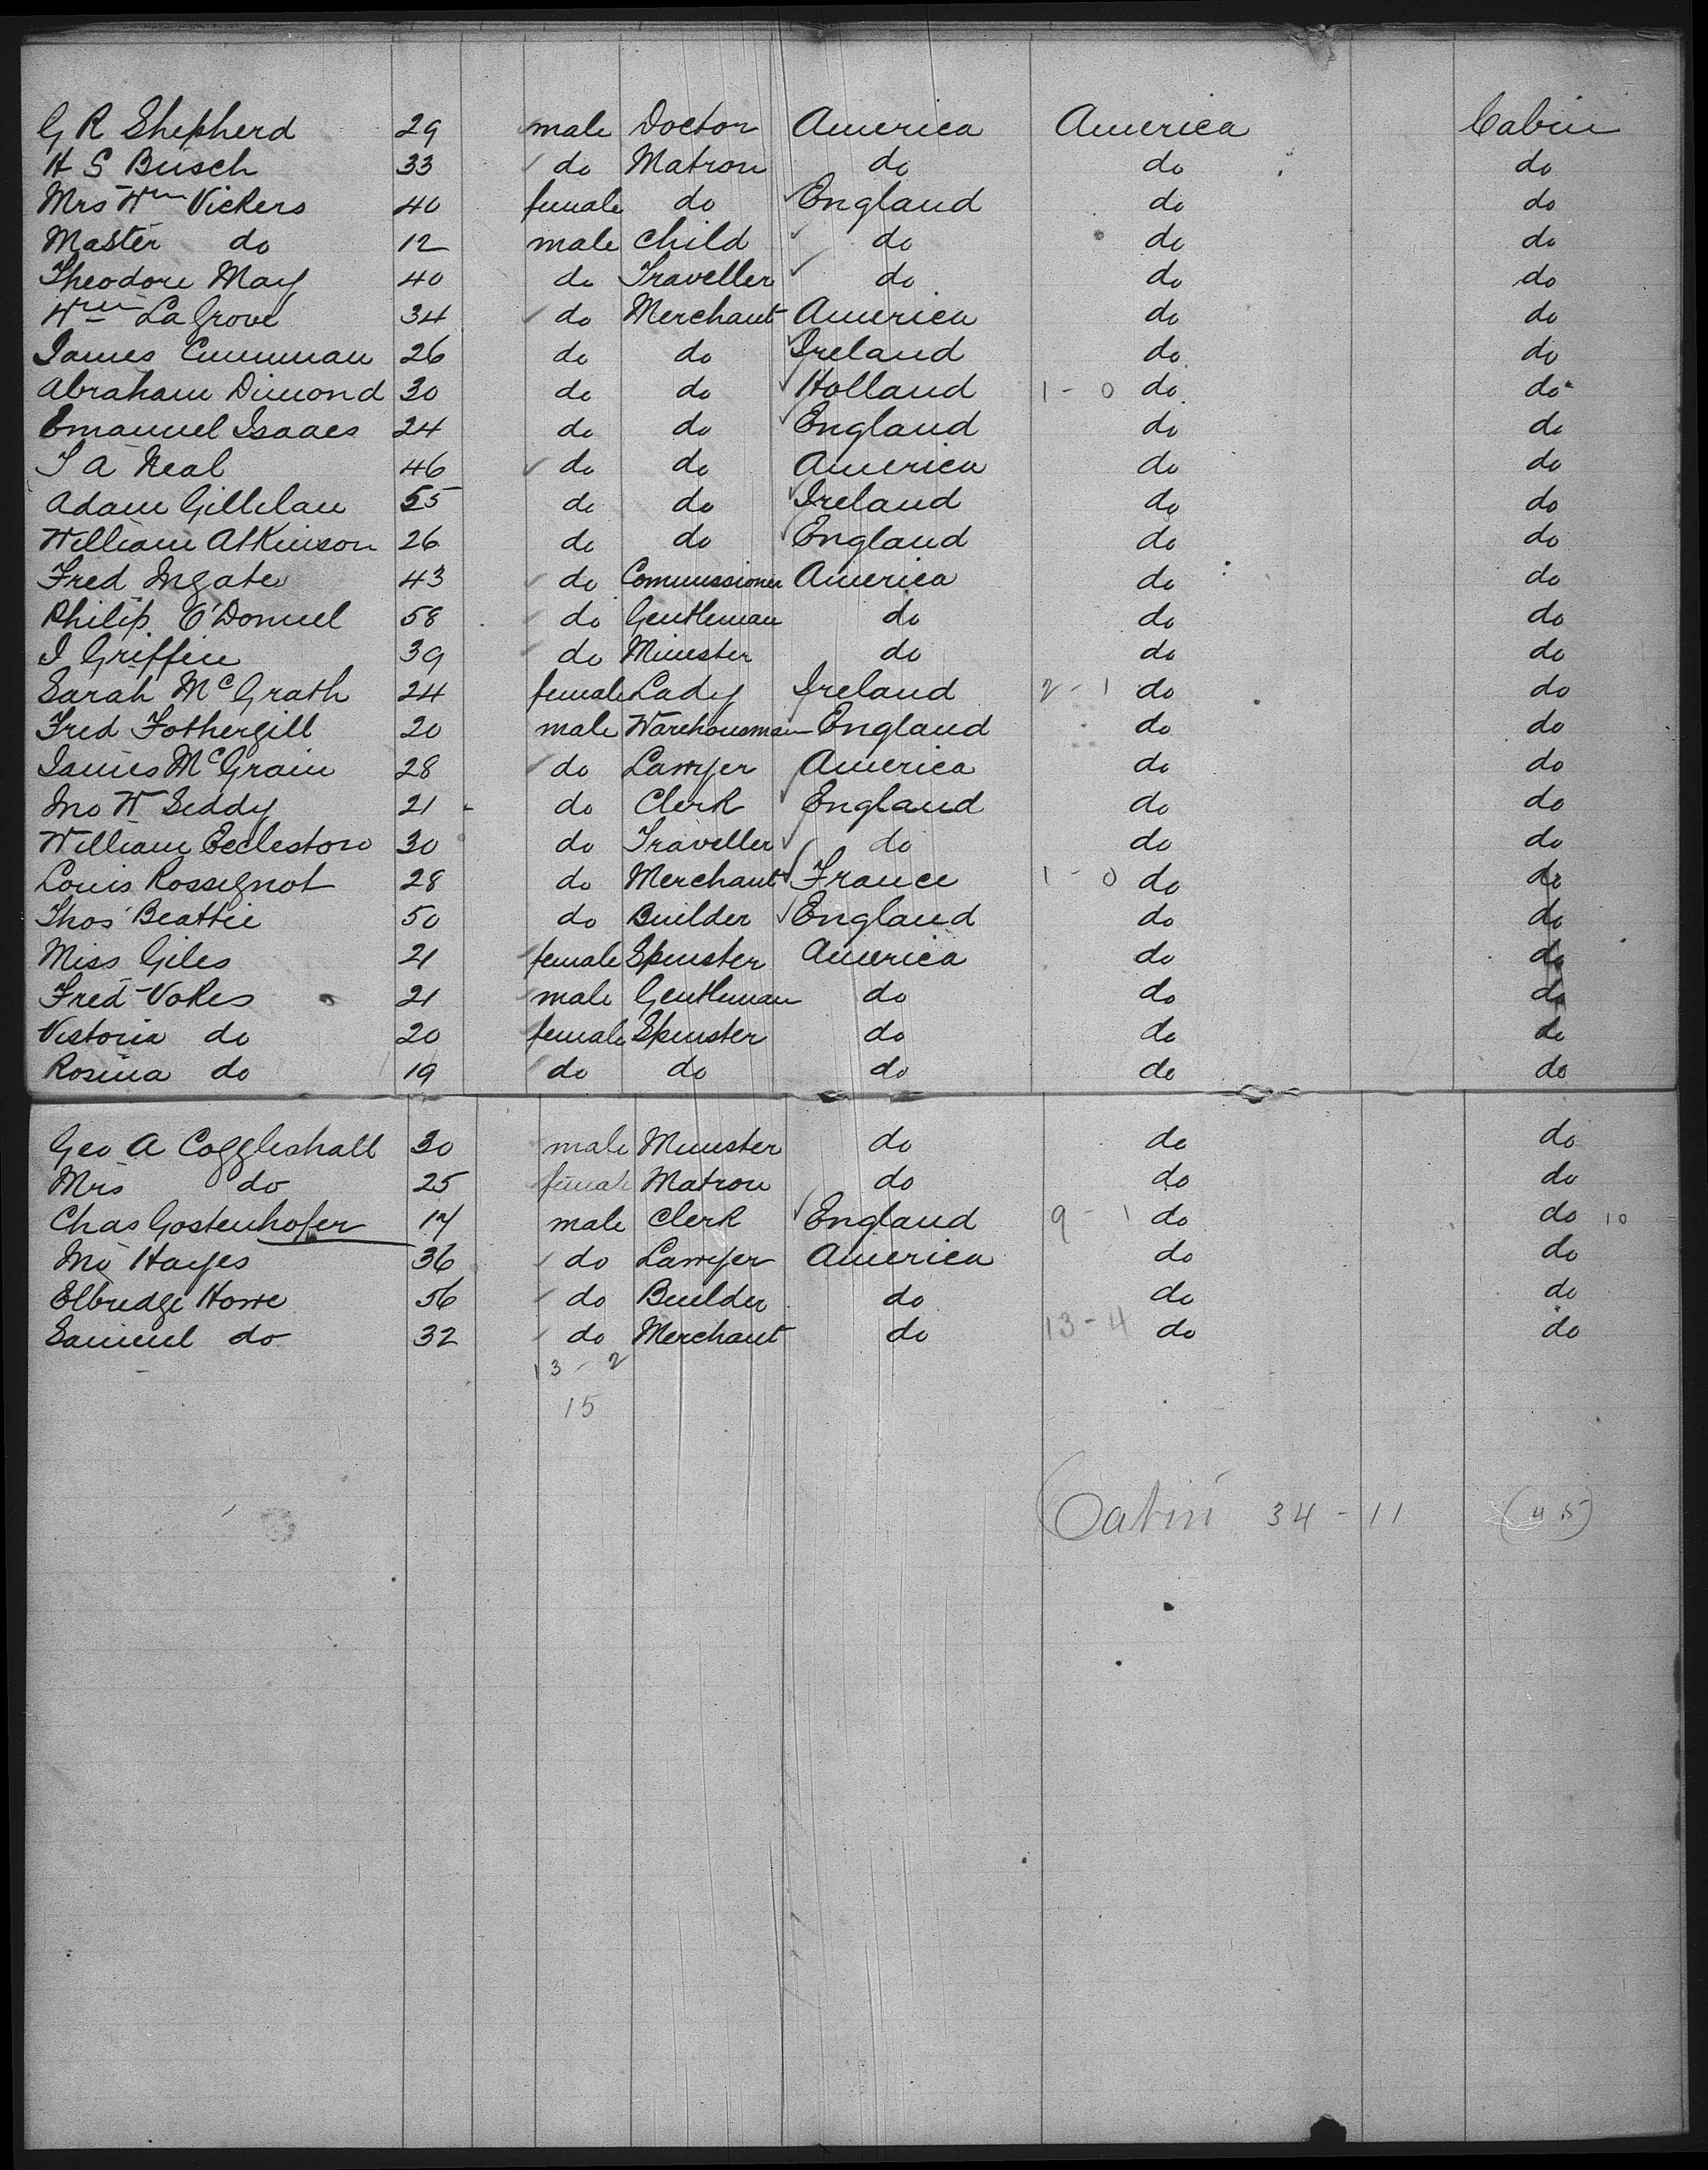 G R Shepherd 29 male Doctor America America Cabin
H S Busch 33 do Matron do do do
Mrs Wm Vickers 40 female do England do do
Master do 12 male child do do do
Theodore May 40 do Traveller do do do
Wm La Grove 34 do Merchant America do do
James 26 do do Ireland do do
Abraham Dimond 30 do do Holland 1 - 0 do do
Emanuel Isaacs 24 do do England do do
T A Neal 46 do do America do do
Adam Gillilan 55 do do Ireland do do
William Atkinson 26 do do England do do
Fred Ingate 43 do Commissioner America do do
Philip O'Donnel 58 do Gentleman do do do
J Griffin 39 do Minister do do do
Sarah McGrath 24 female Lady Ireland 2 - 1 do do
Fred Fothergill 20 male Warehousman England do do
James McGrain 28 do Lawyer America do do
Jno W Seddy 21 do Clerk England do do
William Eccleston 30 do Traveller do do do
Louis Rossignot 28 do Merchant France 1 - 0 do do
Thos Beattie 50 do Builder England do do
Miss Giles 21 female Spinster America do do
Fred Vokes 21 male Gentleman do do do
Victoria do 20 female Spinster do do do
Rosina do 19 do do do do do
Geo A Coggleshall 30 male Minister do do do
Mrs do 25 female Matron do do do
Chas Gostenhofer 17 male Clerk England 9 - 1 do do 10
Jno Hayes 36 do Lawyer America do do
Elbridge Howe 56 do Builder do do do
Samuel do 32 do Merchant do 13 - 4 do do
13 - 2
15
Cabin 34 - 11 (45)